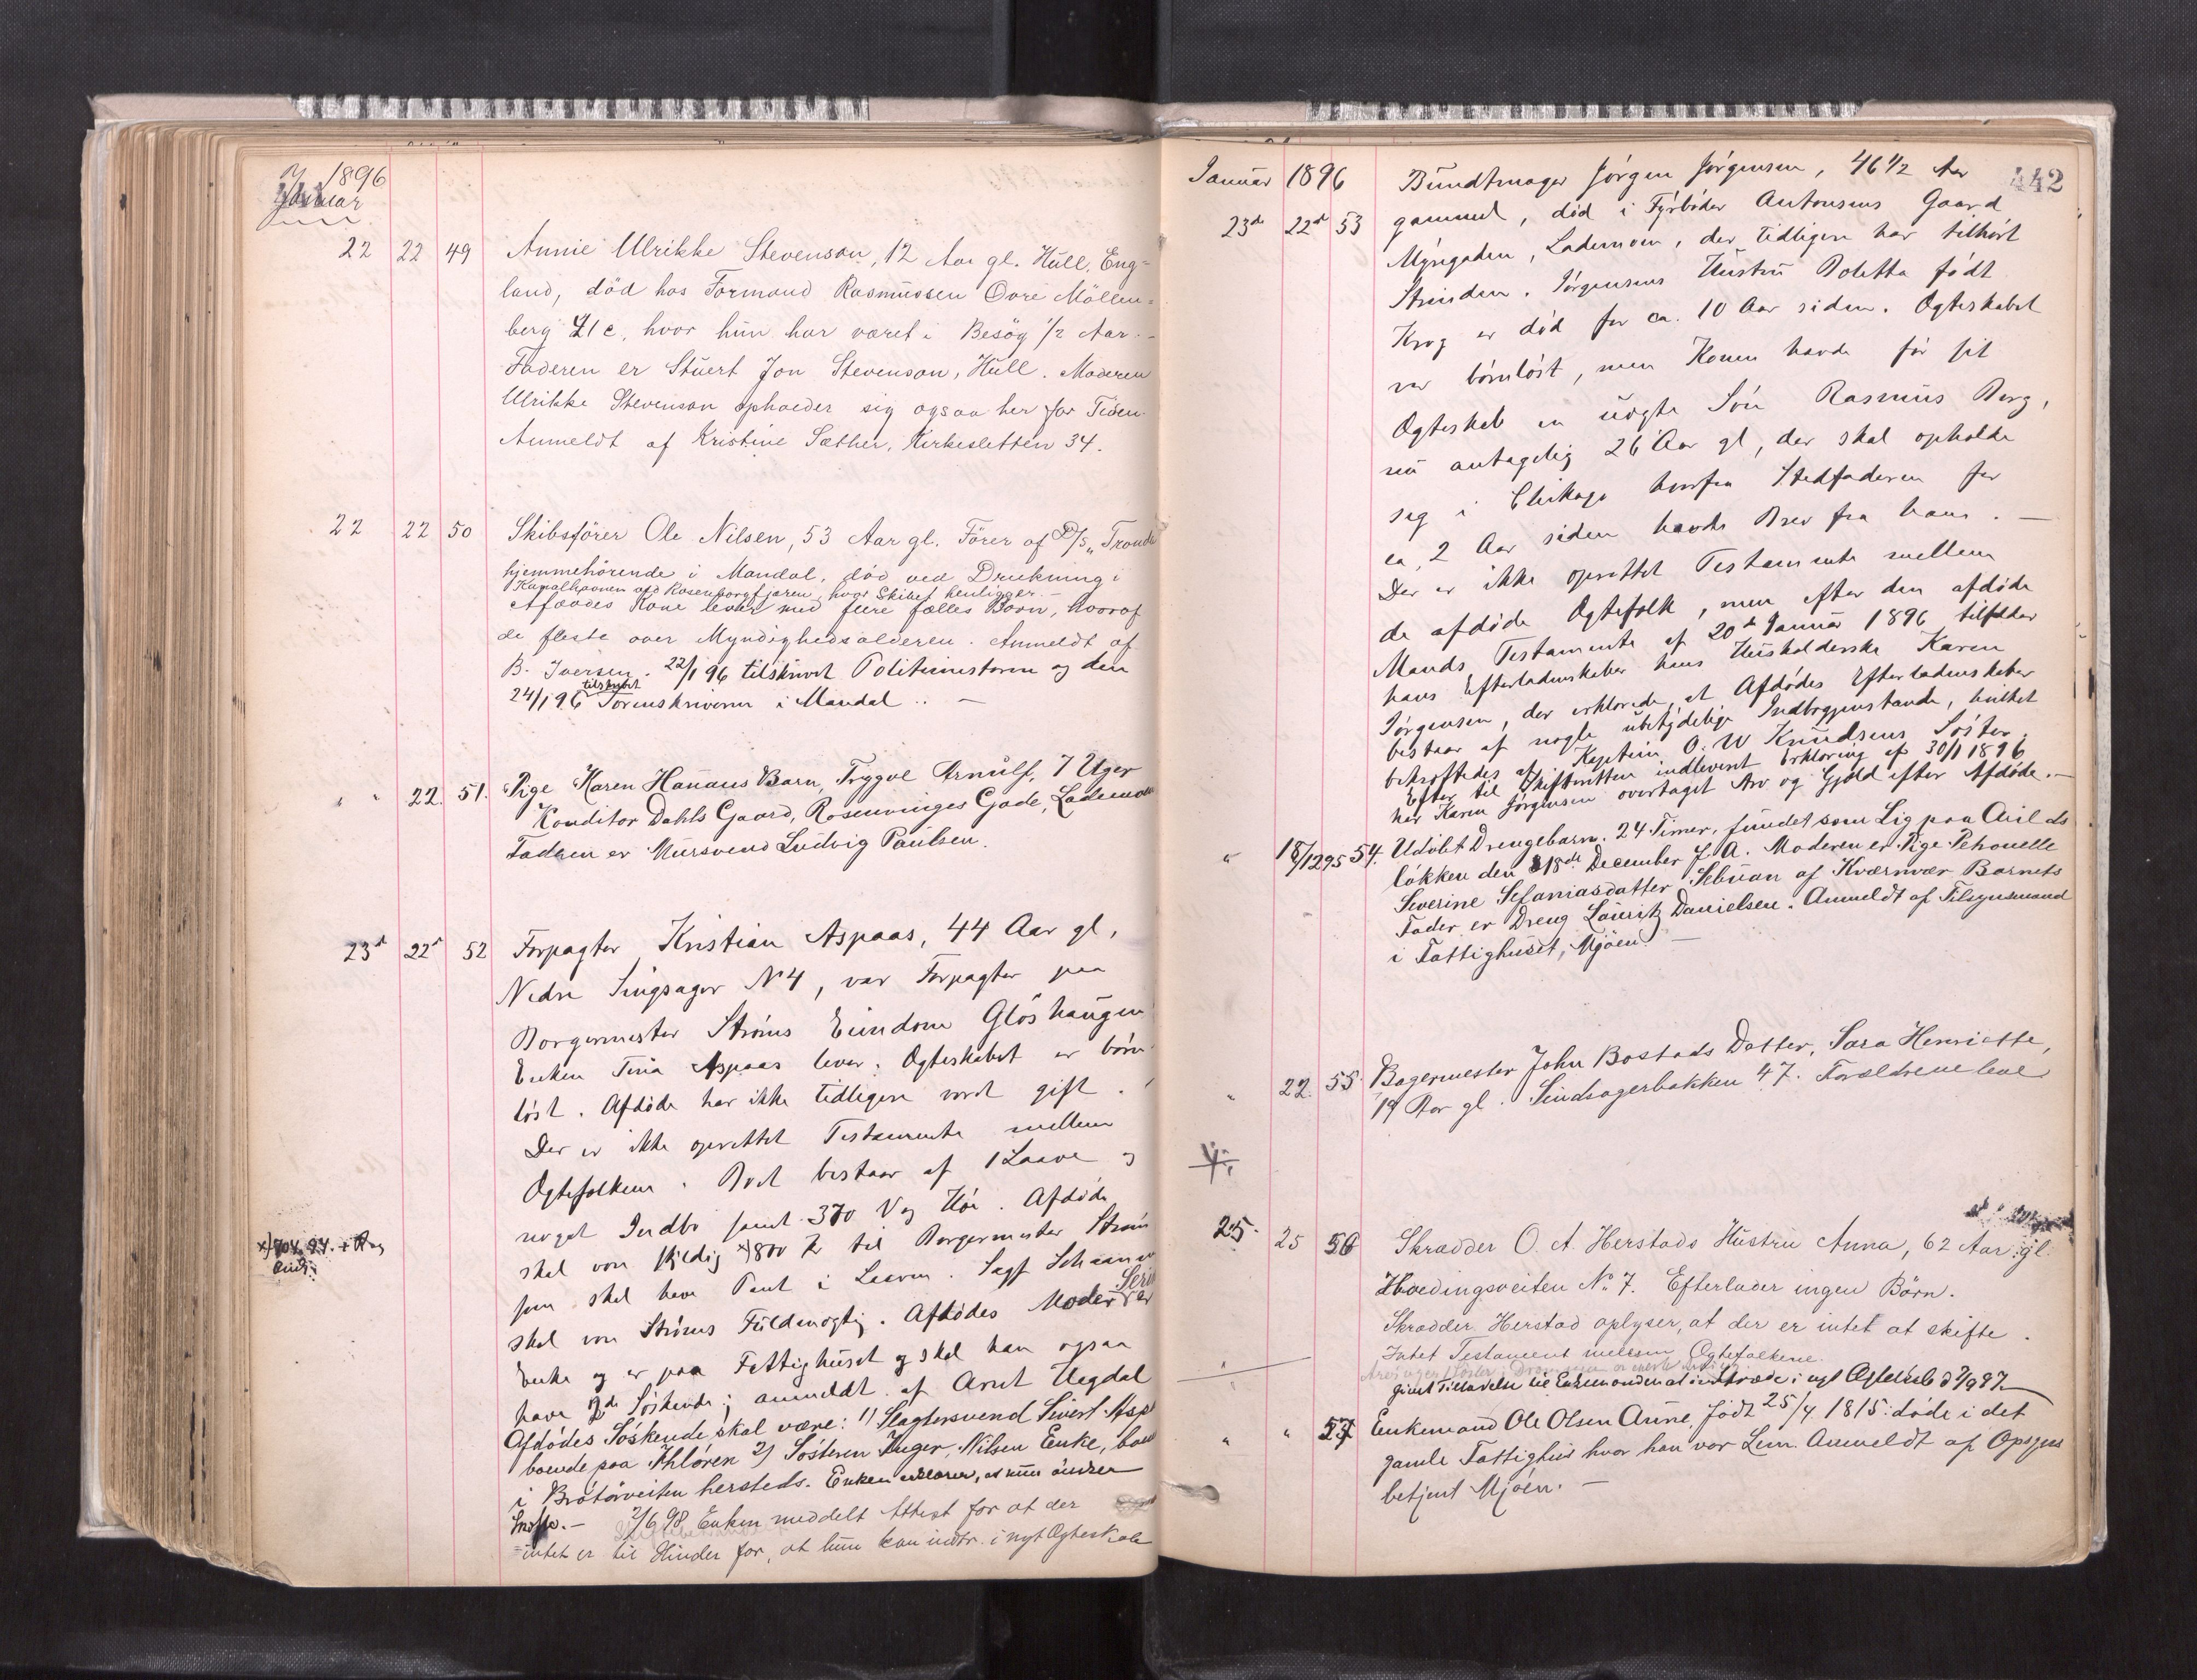 1896
Januar
22 22 49 Annie Ulrikke Stevenson, 12 Aar gl. Hull, Eng=
land, död hos Formand Rasmussen Övre Möllen=
berg 21 c, hvor hun har været i Besög 1/2 Aar. -
Faderen er Stuert Jon Stevenson, Hull. Moderen
Ulrikke Stevenson opholder sig ogsaa her for Tiden.
Anmeldt af Kristine Sæther, Kirkesletten 34.
22 22 50 Skibsförer Ole Nilsen, 53 Aar gl. Förer af D/S „Trond
hjemmehörende i Mandal, död ved Drukning i
Kanalhavnen ved Rosenborgfjæren, hvor Skibet henligger. -
Afdödes Kone lever med flere fælles Börn, hvoraf
de fleste over Myndighedsalderen. Anmeldt af
B. Iversen. 22/1 96 tilskrevet Politimesteren og den
24/1 96 tilskrevet Sorenskriveren i Mandal .. -
" " 22. 51. Pige Karen Hanaus Barn, Trygve Arnulf, 7 Uger
Konditor Dahls Gaard, Rosenvinges Gade, Lademoen
Faderen er Mursvend Ludvig Paulsen.
23d 22d 52 Forpagter Kristian Aspaas, 44 Aar gl,
Nedre Singsager No 4, var Forpagter paa
Borgermester Ströms Eiendom Glöshaugen
Enken Tina Aspaas lever. Ægteskabet er börn
löst. Afdöde har ikke tidligere vært gift.
Der er ikke oprettet Testamente mellem
Ægtefolkene. Boet bestaar af 1 Laave og
noget Indbo samt 370 Vog Höi. Afdöde
skal være skyldig x) 800 Kr til Borgermester Ström
x) 704. 94. + Rug
som skal have Pant i Laaven. Sagf Schaan
skal være Ströms Fuldmægtig. Afdödes Moder er
Enke og er paa Fattighuset og skal han ogsaa
have 2de Söskende; anmeldt af Arnt Uegdal
Afdödes Söskende skal være: 1) Slagtersvend Sivert Asp
boende paa Ihlören 2) Sösteren Inger, Nilsen Enke, boen
i Bratörveiten hersteds. Enken erklærer, at hun önsker
Skifte. - 2/6 98 Enken meddelt Attest for at der
intet er til Hinder for, at hun kan indtr. i nyt Ægteskab
Januar 1896
442
Bundtmager Jörgen Jörgensen, 46 1/2 Aar
23de 22d 53 gammel, död i Fyrböder Antonsens Gaard
Myrgaden, Lademoen, der tidligere har tilhört
Strinden. Jörgensens Hustru Boletta födt
Krog er död for ca. 10 Aar siden. Ægteskabet
var börnlöst, men Konen havde för sit
Ægteskab en uægte Sön Rasmus Berg,
nu antagelig 26 Aar gl, der skal opholde
sig i Chikago hvorfra Stedfaderen for
ca. 2 Aar siden havde Brev fra ham. -
Der er ikke oprettet Testamente mellem
de afdöde Ægtefolk, men efter den afdöde
Mands Testamente af 20de Januar 1896 tilfalder
hans Efterladenskaber hans Husholderske Karen
Jörgensen, der erklærede, at Afdödes Efterladenskaber
bestaar af nogle ubetydelige Indbogjenstande, hvilket
bekræftedes af Kaptein O. W Knudsens Söster.
Efter til Skifteretten indleveret Erklæring af 30/1 1896
har Karen Jörgensen overtaget Arv og Gjæld efter Afdöde. -
" 18/12 95 54. Udöbt Drengebarn. 24 Timer, fundet som Lig paa Arilds
lökken den 18de December f. A. Moderen er Pige Pehonelle
Severine Sefaniasdatter Sebuan af Kværnvær Barnets
Fader er Dreng Lauritz Danielsen. Anmeldt af Tilsynsmand
i Fattighuset, Mjöen. -
" 22. 55. Bagermester John Bostads Datter, Sara Henriette,
19 Aar gl. Sindsagerbakken 47. Forældrene leve
25. 25 56 Skrædder O. A. Herstads Hustru Anna, 62 Aar gl.
Hvedingsveiten No 7. Efterlader ingen Börn.
Skrædder Herstad oplyser, at der er intet at skifte.
Intet Testament mellem Ægtefolkene.
givet Tilladelse til Enkemanden at indtræde i nyt Ægteskab d 7/9 97.
" " 57 Enkemand Ole Olsen Aune, födt 25/4 1815. döde i det
gamle Fattighus hvor han var Lem. Anmeldt af Opsyns
betjent Mjöen. -